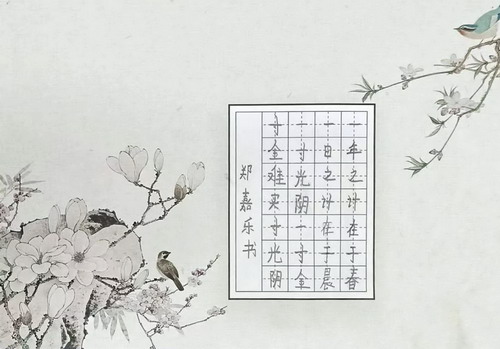 一年之计在于春
一日之计在于晨
一寸光阴一寸金
寸金难买寸光阴
郑嘉乐书